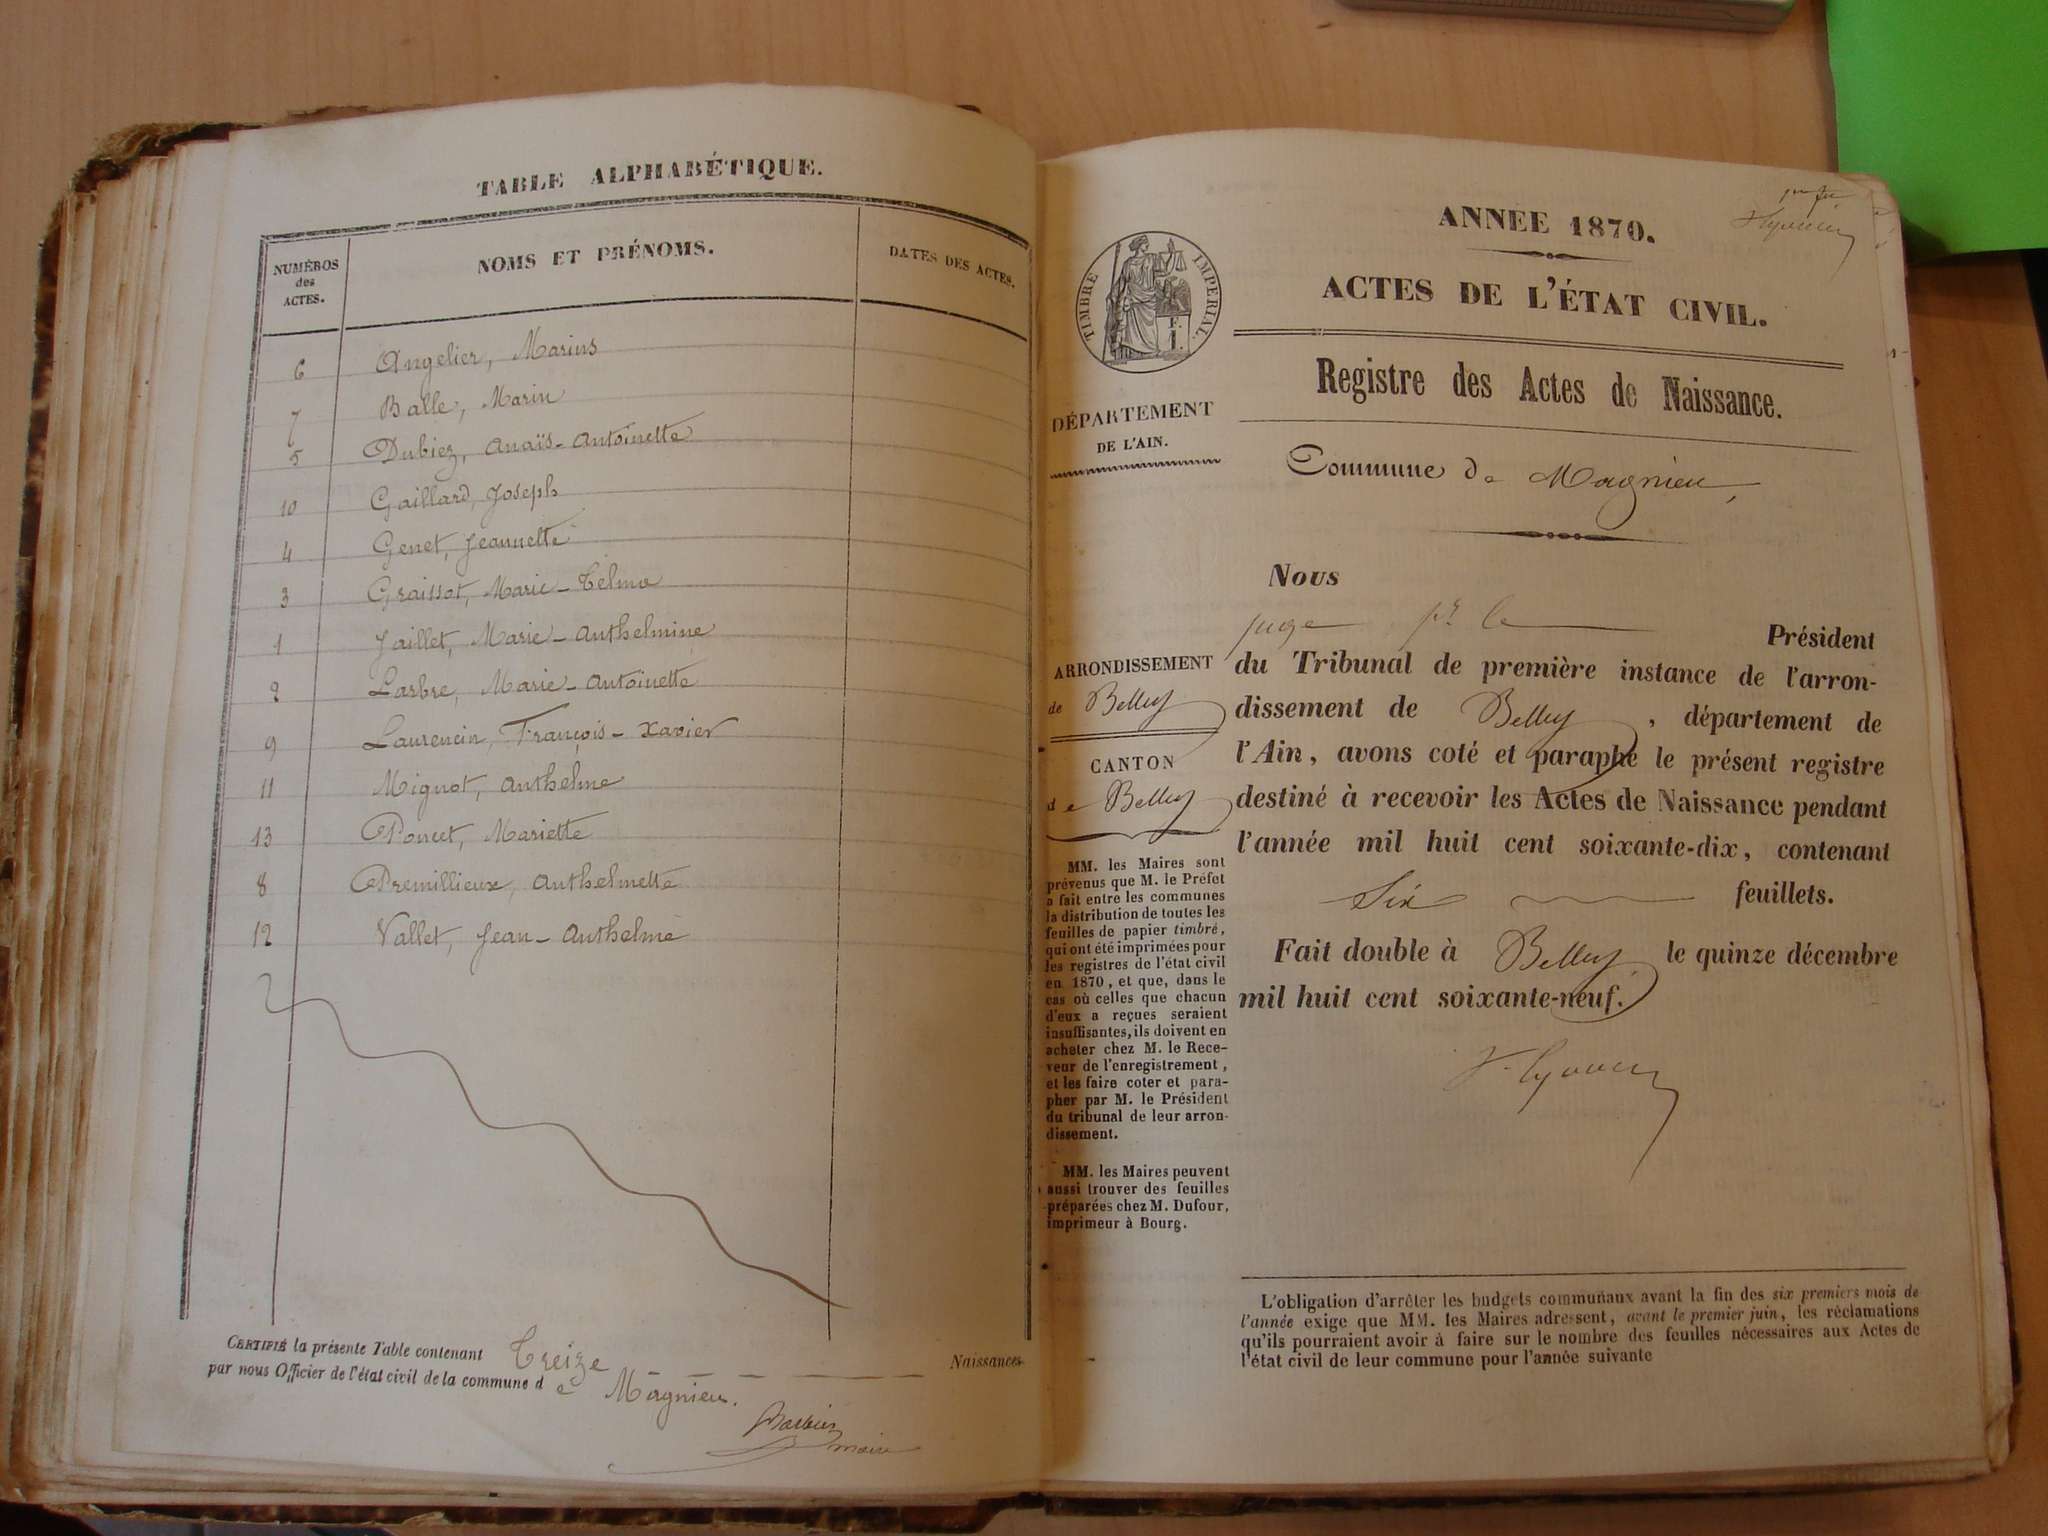 TABLE ALPHABÉTIQUE.
NUMÉROS des ACTES.
NOMS ET PRÉNOMS.
DATES DES ACTES.
6 Angelier, Marius
7 Balle, Marin
5 Dubiez, Anaïs-Antoinette
10 Gaillard, Joseph
4 Genet, Jeannette
3 Graissot, Marie-Telma
1 Jaillet, Marie-Anthelmine
2 Larbre, Marie-Antoinette
9 Laurencin, François-Xavier
11 Mignot, Anthelme
13 Poncet, Mariette
8 Premillieux, Anthelmette
12 Vallet, Jean-Anthelme
CERTIFIÉ la présente Table contenant Treize Naissances
par nous Officier de l'état civil de la commune de Magnieu.
Barbier
maire
ANNÉE 1870.
ACTES DE L'ÉTAT CIVIL.
Registre des Actes de Naissance.
Commune de Magnieu,
TIMBRE IMPÉRIAL.
DÉPARTEMENT
DE L'AIN.
ARRONDISSEMENT
de Belley
CANTON
de Belley
MM. les Maires sont
prévenus que M. le Préfet
a fait entre les communes
la distribution de toutes les
feuilles de papier timbré,
qui ont été imprimées pour
les registres de l'état civil
en 1870, et que, dans le
cas où celles que chacun
d'eux a reçues seraient
insuffisantes, ils doivent en
acheter chez M. le Rece-
veur de l'enregistrement,
et les faire coter et para-
pher par M. le Président
du tribunal de leur arron-
dissement.
MM. les Maires peuvent
aussi trouver des feuilles
préparées chez M. Dufour,
imprimeur à Bourg.
Nous
juge pr le Président
du Tribunal de première instance de l'arron-
dissement de Belley, département de
l'Ain, avons coté et paraphé le présent registre
destiné à recevoir les Actes de Naissance pendant
l'année mil huit cent soixante-dix, contenant
Six feuillets.
Fait double à Belley le quinze décembre
mil huit cent soixante-neuf.
L'obligation d'arrêter les budgets communaux avant la fin des six premiers mois de
l'année exige que MM. les Maires adressent, avant le premier juin, les réclamations
qu'ils pourraient avoir à faire sur le nombre des feuilles nécessaires aux Actes de
l'état civil de leur commune pour l'année suivante